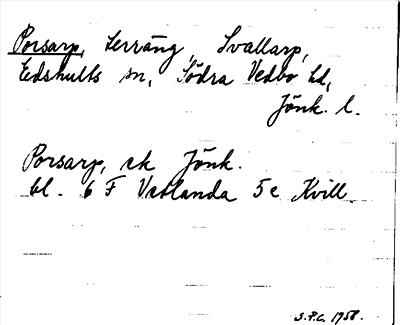 Porsarp, terräng, Svallarp,
Edshults sn, Södra Vedbo hd,
Jönk. l.
Porsarp, ek Jönk.
bl. 6 F Vetlanda 5 e Kvill
S.P.C. 1958.